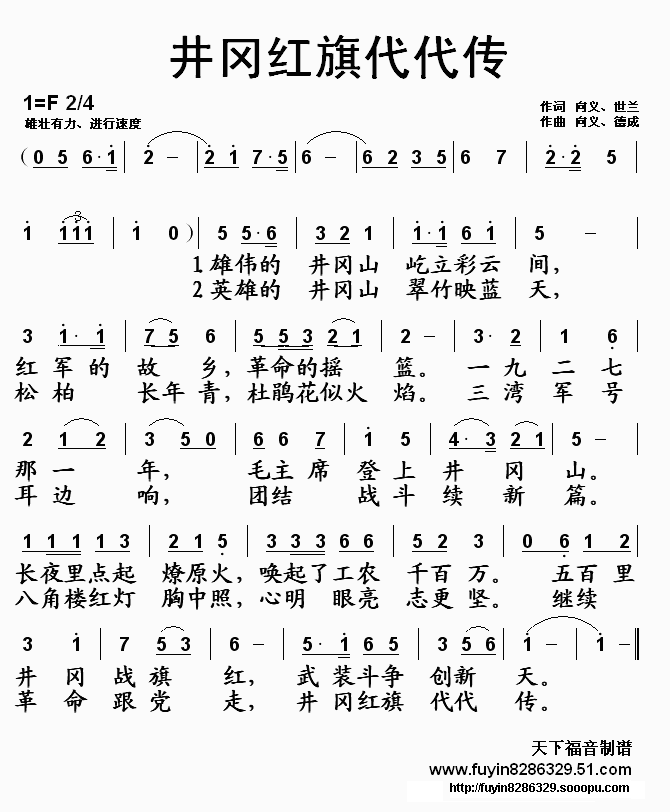 井冈红旗代代传
1=F 2/4
作词 向义、世兰
雄壮有力、进行速度
作曲 向义、德成
( 0 5 6·i | 2 – | 2 i 7·5 | 6 – | 6 2 3 5 | 6 7 | 2·2 5 |
i i i i | i 0 ) | 5 5·6 | 3 2 1 | i·i 6 i | 5 – |
3
1雄伟的 井冈山 屹立彩云 间,
2英雄的 井冈山 翠竹映蓝 天,
3 1·1 | 7 5 6 | 5 5 3 2 1 | 2 – | 3·2 | 1 6 |
红军的 故 乡,革命的摇 篮。一九二七
松柏 长年青,杜鹃花似火 焰。三湾军号
2 1 2 | 3 5 0 | 6 6 7 | i 5 | 4·3 2 1 | 5 – |
那一 年, 毛主席登上井 冈 山。
耳边 响, 团结 战斗续新 篇。
1 1 1 1 3 | 2 1 5 | 3 3 3 6 6 | 5 3 2 | 0 6 1 2 |
长夜里点起 燎原火,唤起了工农 千百万。五百里
八角楼红灯 胸中照,心明 眼亮 志更坚。继续
3 i | 7 5 3 | 6 – | 5·i 6 5 | 5 5 3 | i – | i – |
井 冈 战旗 红, 武装斗争 创新 天。
革 命 跟党 走, 井冈红旗 代代 传。
天下福音制谱
www.fuyin8286329.51.com
http://fuyin8286329.sooopu.com